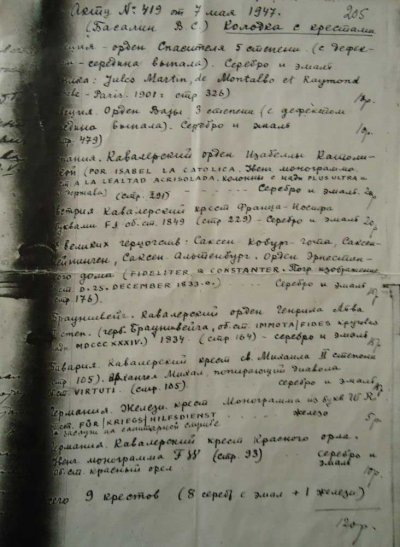 Акту № 419 от 7 мая 1947. 205
(Басалин В.С.) Колодка с крестами
орден Спасителя 5 степени (с дефек-
середина выпала). Серебро и эмаль
Jules Martin, de Montalbo et Raymond
Paris. 1901. стр 326)
Орден Вазы 3 степени (с дефектом
выпала). Серебро и эмаль
479)
Кавалерский орден Изабеллы Католи-
(POR ISABEL LA CATOLICA.
A LA LEALTAD ACRISOLADA. колонны с надп PLUS ULTRA и
(стр. 291) Серебро и эмаль. 20р
Кавалерский крест Франца-Иосифа
FJ об.ст. 1849 (стр 229) - Серебро и эмаль 20р
великих герцогств: Саксен Кобург-гота, Саксен-
Саксен Альтенбург. Орден Эрнестин-
дома (FIDELITER & CONSTANTER. изображение
D. 25. DECEMBER 1833. Серебро и эмаль
стр 176).
Брауншвейг. Кавалерский орден Генриха Льва
(герб Брауншвейга, об.ст. IMMOTA FIDES
MDCCC XXXIV.) 1934 (стр. 164) - серебро и эмаль
Бавария. Кавалерский крест св. Михаила II степени
стр. 105). Архангел Михаил, попирающий дьявола
VIRTUTI. (стр. 105) серебро и эмаль
Железн. крест Монограмма из букв W R
FÜR/KRIEGS/HILFSDIENST железо 5р.
за заслуги на санитарной службе
Кавалерский крест Красного орла.
монограмма (стр. 93) серебро и
об.ст. красный орел эмаль 10р
9 крестов (8 серебр с эмал + 1 железн)
120р.